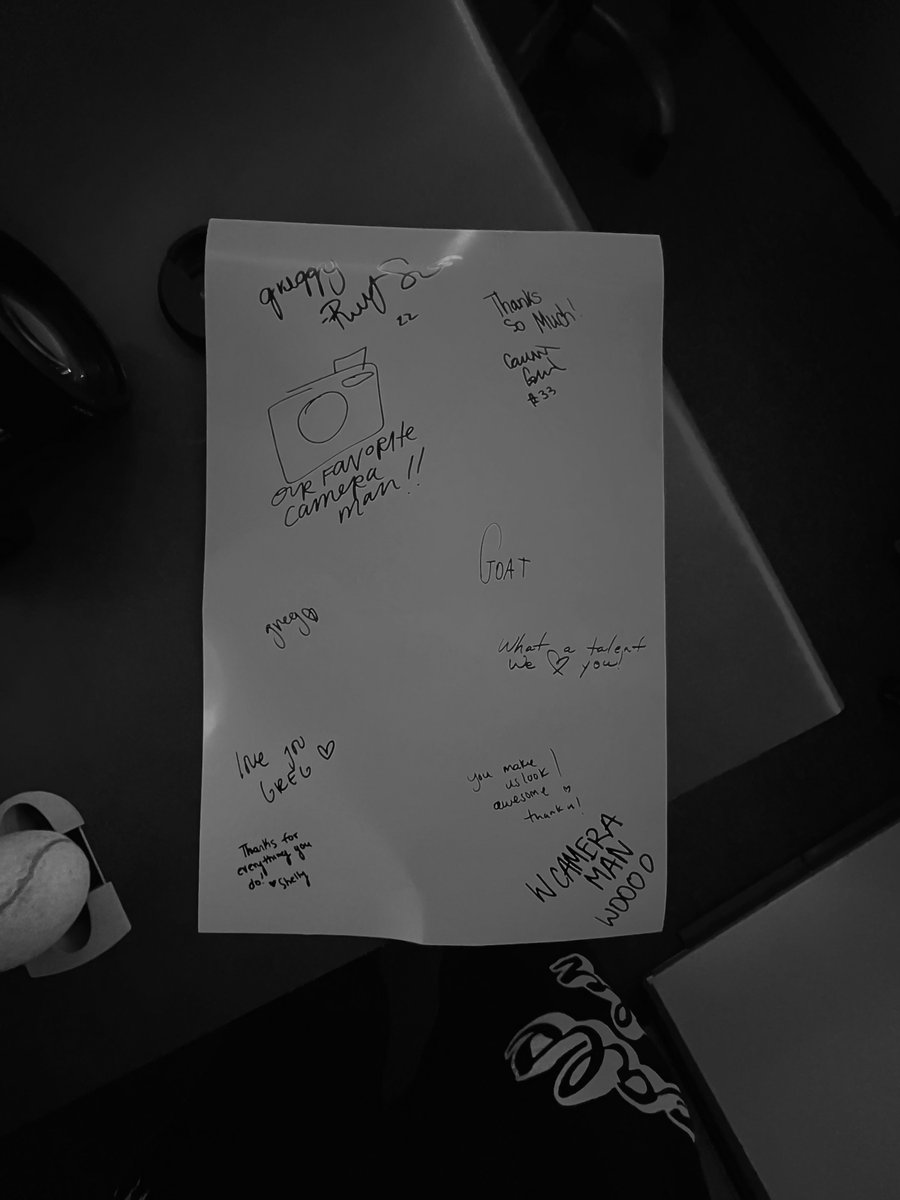 greggy
22
OUR FAVORITE
camera
man!!
greg
love you
GREG
Thanks for
everything you
do! Shelly
Thanks
So Much!
#33
GOAT
What a talent
we you!
you make
us look
awesome
thank u!
W CAMERA
MAN
WOOOO